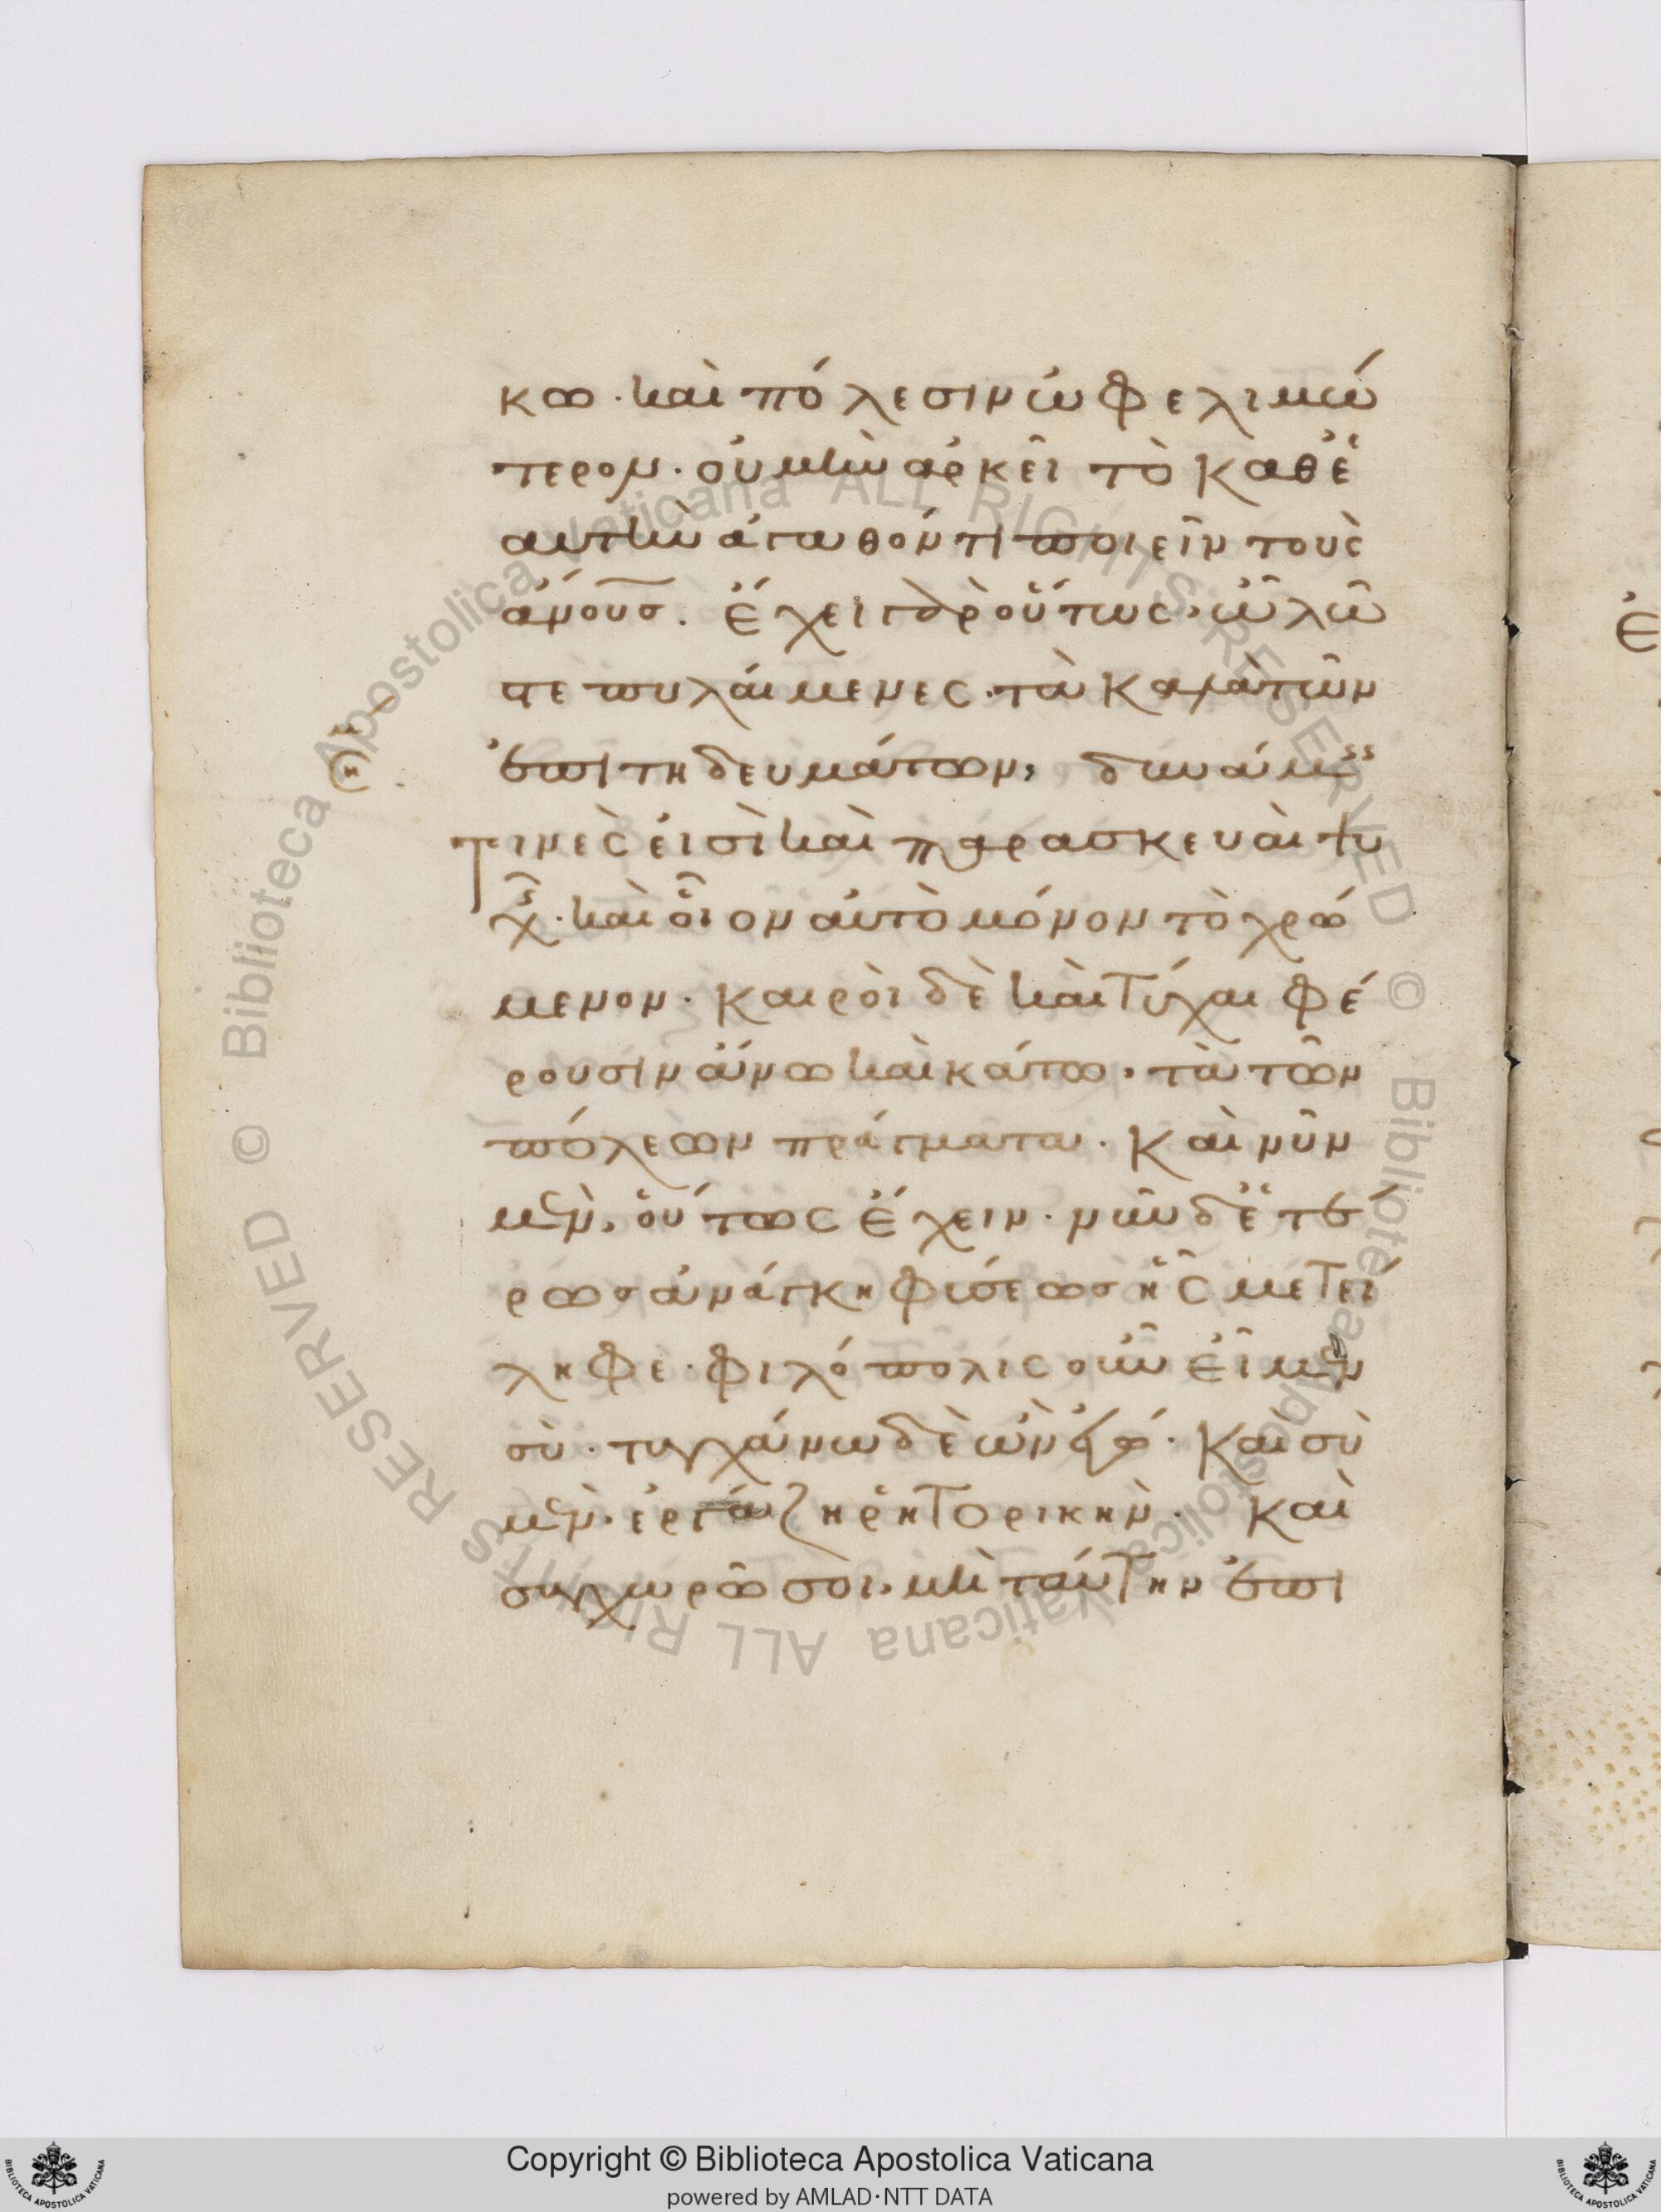 κω · καὶ πόλεσιν ὠφελιμώ
τερον · οὐ μὴν ἀρκεῖ τὸ καθ' ἑ
αυτὴν ἀγαθόν τι ποιεῖν τοὺς
ἀνους · ἔχει γὰρ οὕτως, ὦ λῶ
στε πυλαίμενες · τὰ κατὰ τῶν
ἐπιτηδευμάτων, δυνάμεις
τινές εἰσὶ καὶ παρασκευαὶ
καὶ οἷον αὐτὸ μόνον τὸ χρώ
μενον · καιροὶ δὲ καὶ τύχαι φέ
ρουσιν ἄνω καὶ κάτω, τὰ τῶν
πόλεων πράγματα · καὶ νῦν
μὲν, οὕτως ἔχειν · νῦν δ' ἑτέ
ρως ἀνάγκη φύσεως ἧς μετεί
ληφε · φιλόπολις οὖν εἶ μὲν
σύ · τυγχάνω δὲ ὢν ἐγώ · καὶ σὺ
μὲν · ἐργάζη ῥητορικήν · καὶ
συγχωρῶ σοι, μὴ ταύτην ἐπι
Copyright © Biblioteca Apostolica Vaticana
powered by AMLAD·NTT DATA